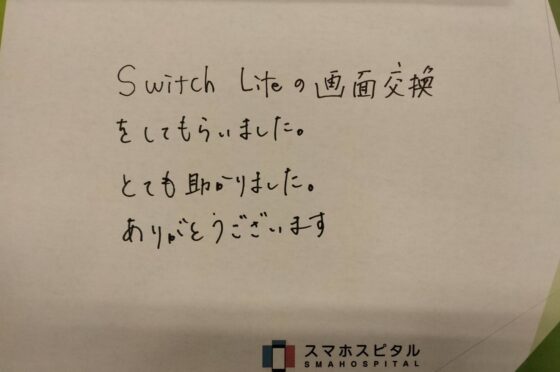 Switch Liteの画面交換
をしてもらいました。
とても助かりました。
ありがとうございます
スマホスピタル
SMAHOSPITAL